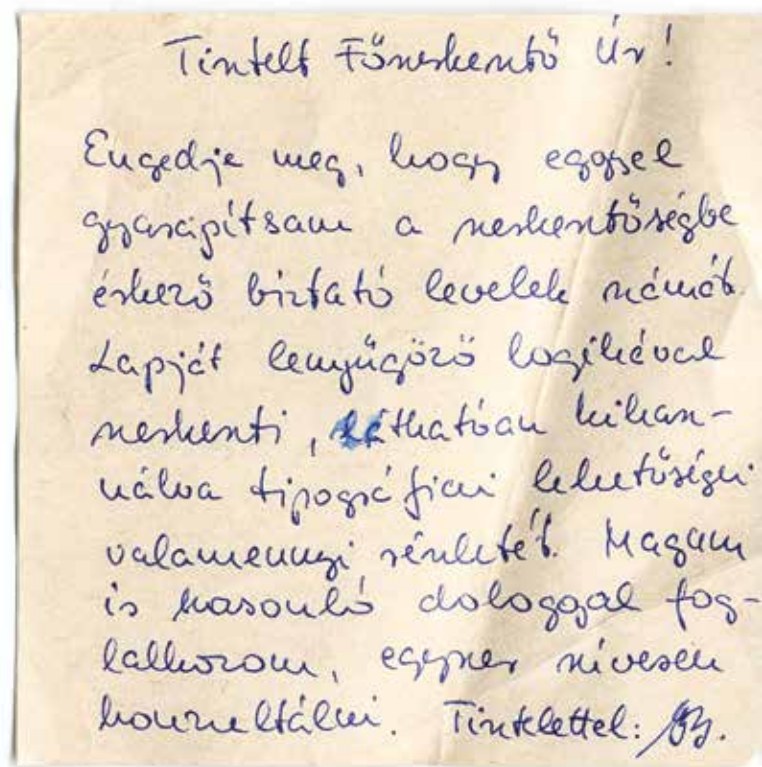 Tisztelt Főszerkesztő Úr!
Engedje meg, hogy eggyel
gyarapítsam a szerkesztőségbe
érkező biztató levelek számát.
Lapját lenyűgöző logikával
szerkeszti, láthatóan kihasz-
nálva tipográfiai lehetőségei
valamennyi részletét. Magam
is hasonló dologgal fog-
lalkozom, egyszer szívesen
konzultálni. Tisztelettel: